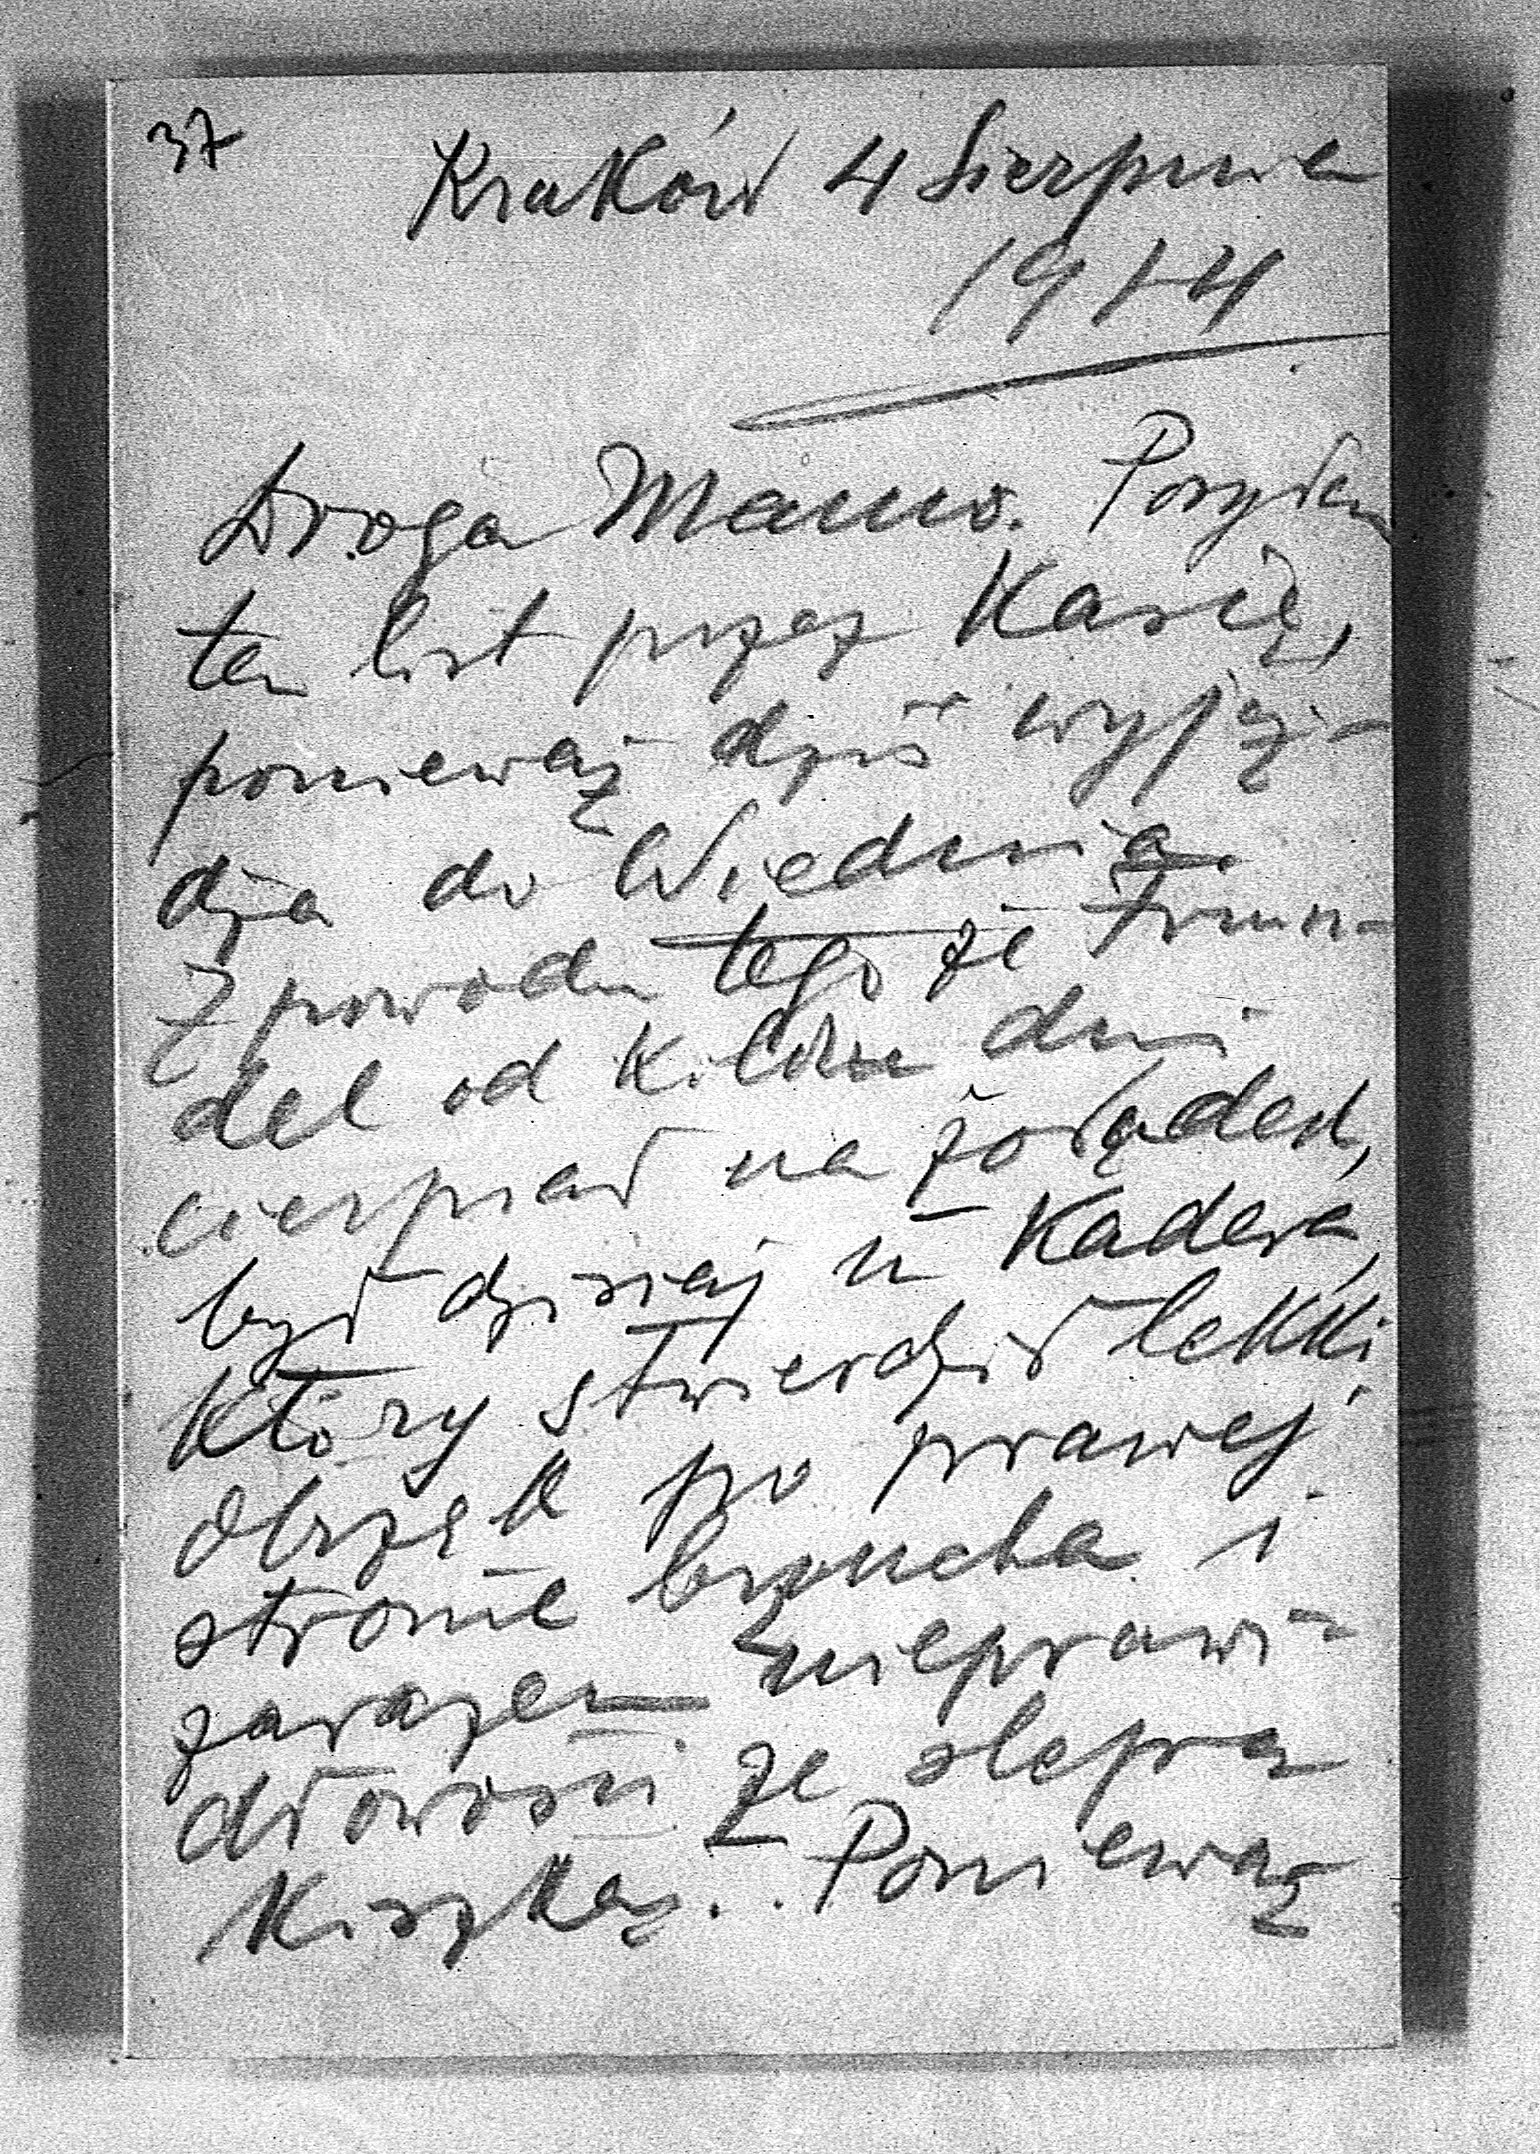 37
Kraków 4 Sierpnia
1914
Droga Mamo. Posyłam
ten list przez Kasię,
ponieważ dziś wyjeż-
dża do Wiednia.
Z powodu tego że
del od kilku dni
cierpiał na żołądek,
był dzisiaj u Kadera,
który stwierdził lekki
obrzęk po prawej
stronie brzucha i
zarazem nieprawi-
dłowości ze slepą
Kiszką. Ponieważ